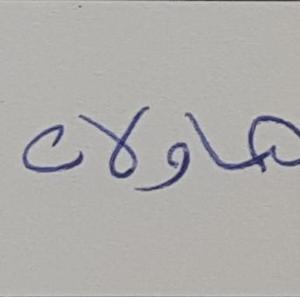 محاولات